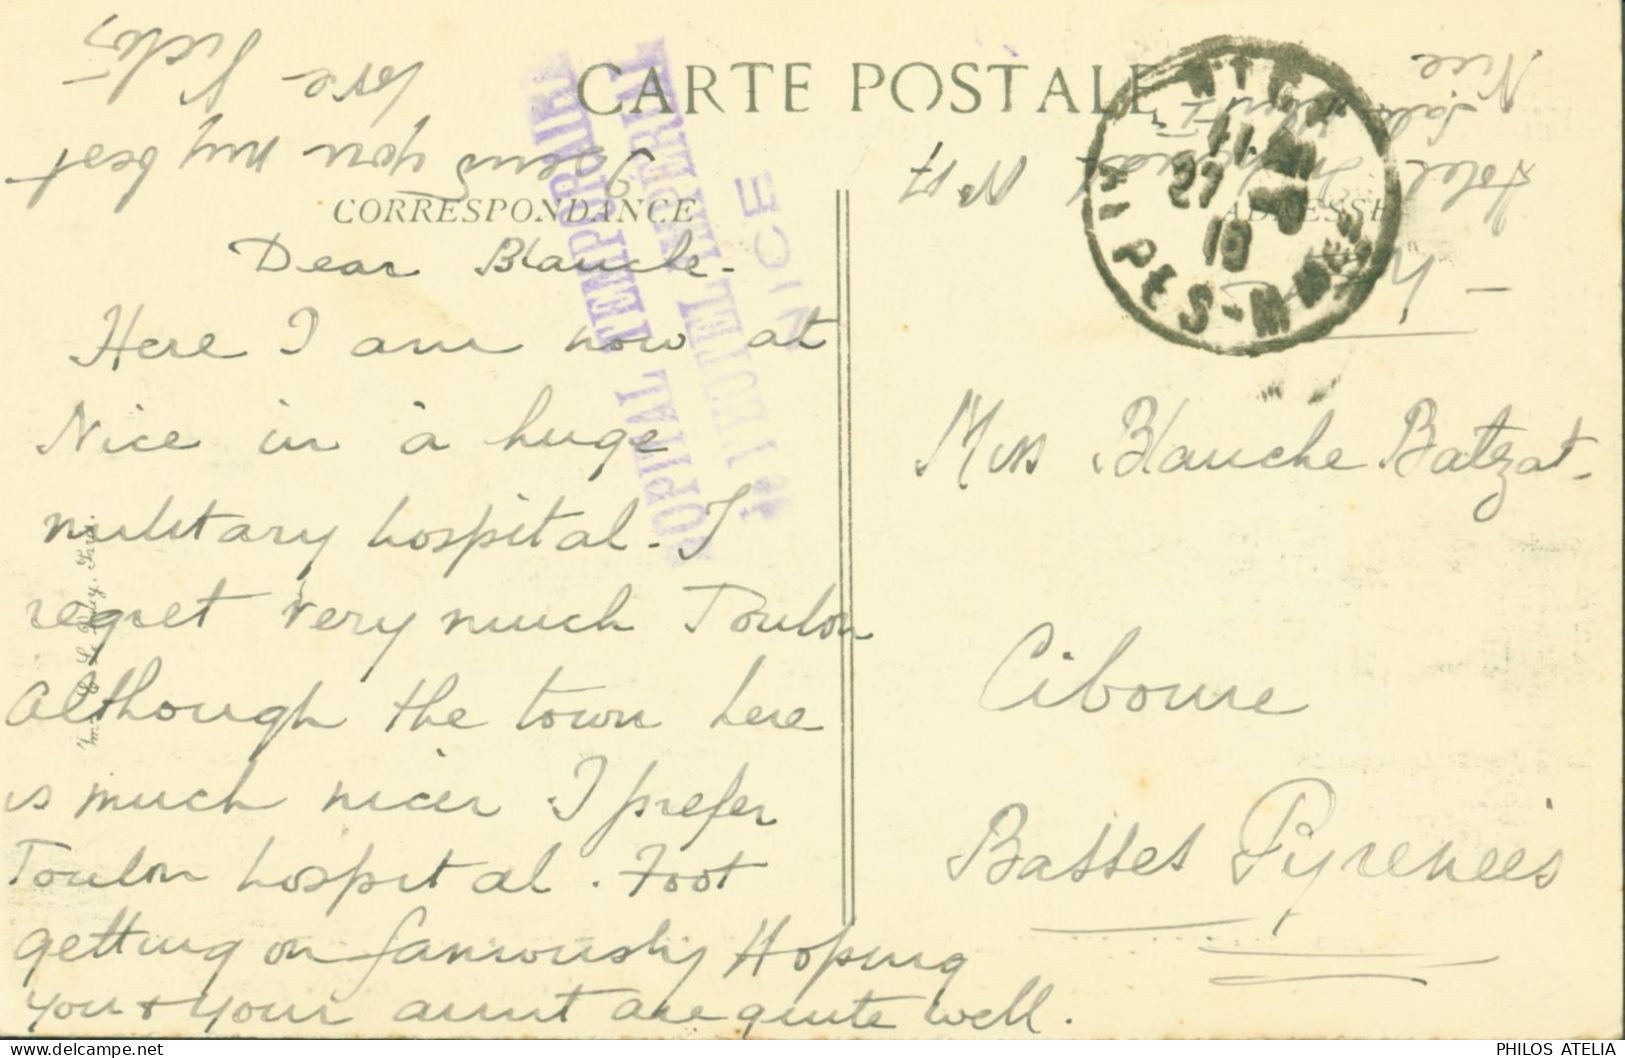 CARTE POSTALE
CORRESPONDANCE
ADRESSE
Dear Blanche -
Here I am now at
Nice in a huge
military hospital. I
regret very much Toulon
Although the town here
is much nicer I prefer
Toulon hospital. Foot
getting on famously Hoping
you & your aunt are quite well.
I send you my best
love
Hotel Impérial No 17
Nice
Miss Blanche Batzat -
Ciboure
Basses Pyrenées
HOPITAL TEMPORAIRE
DE L'HOTEL IMPERIAL
NICE
NICE
27
ALPES-MMES
PHILOS ATELIA